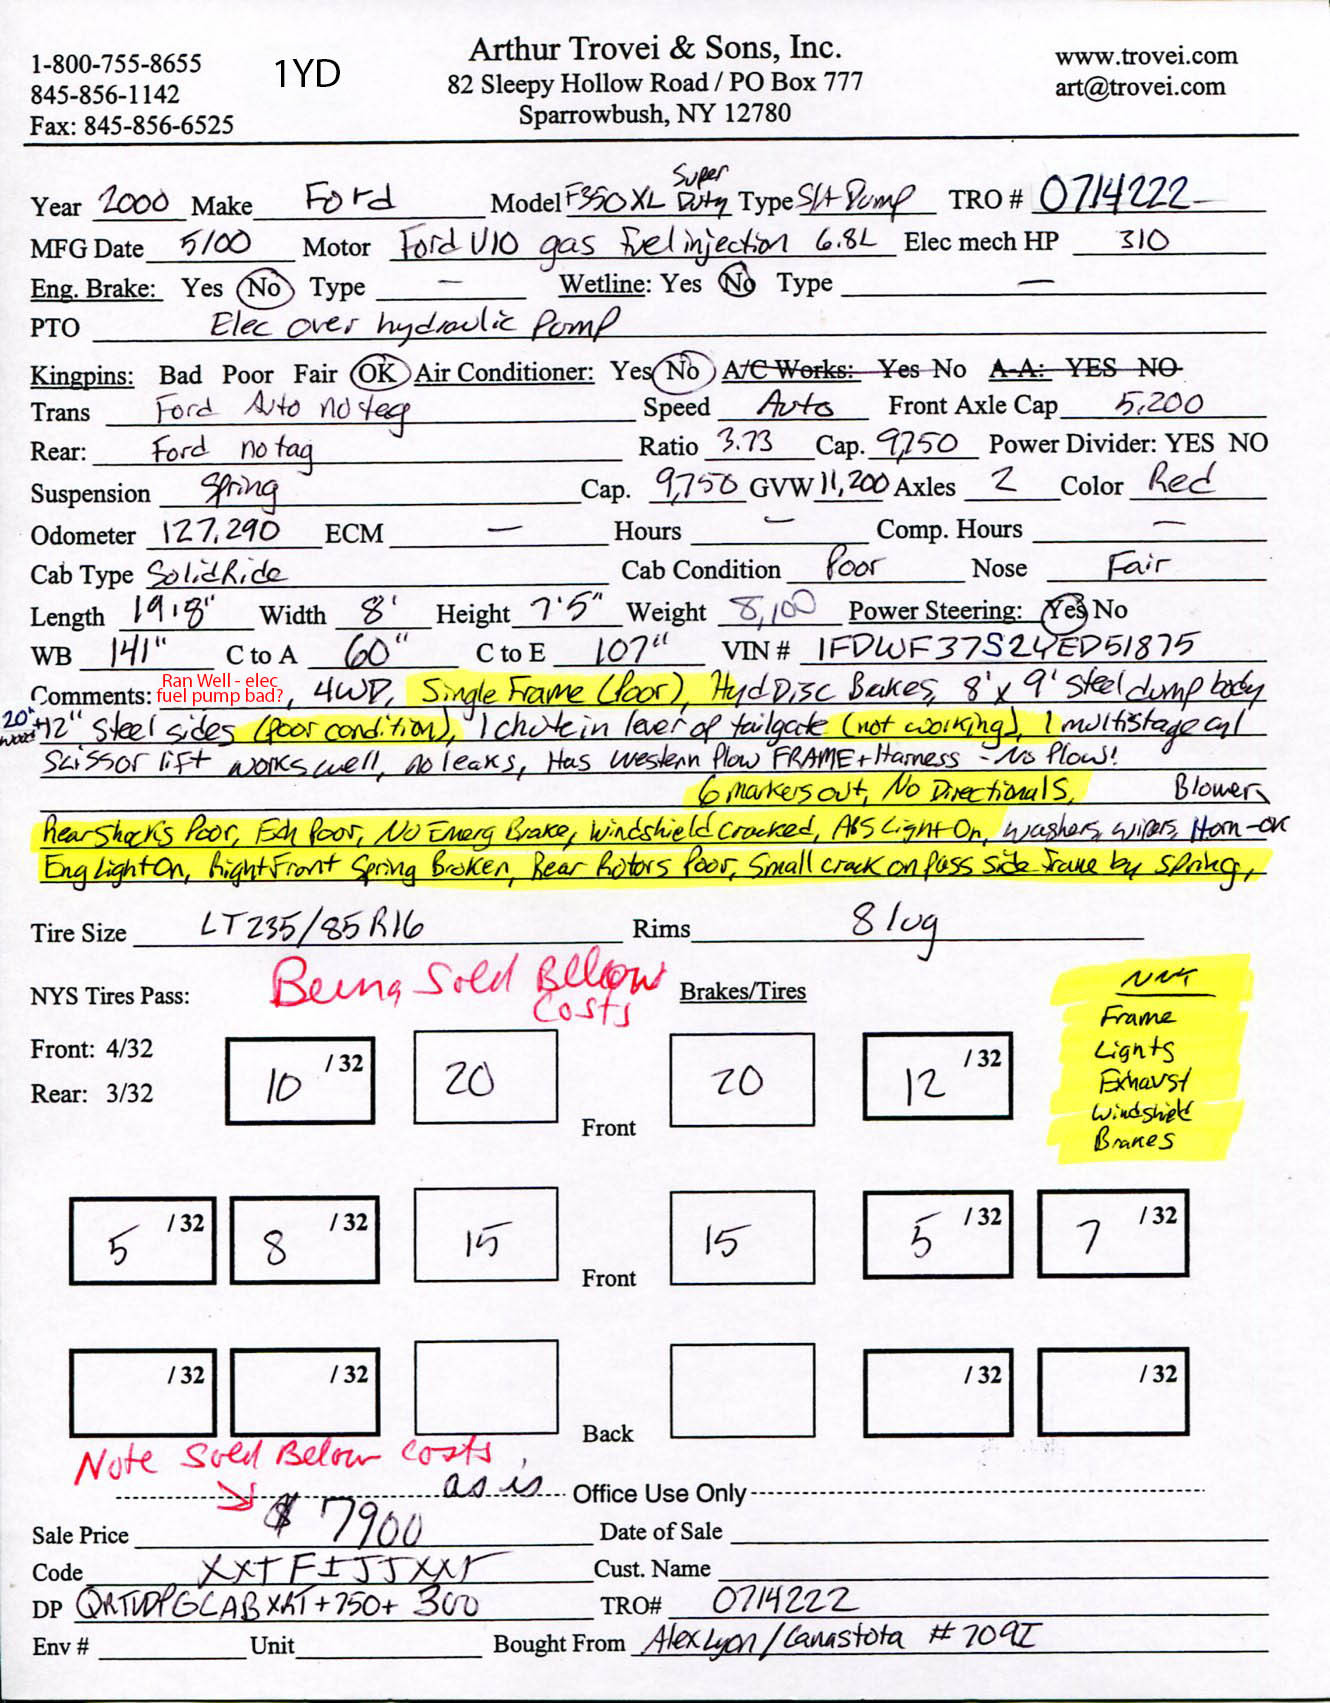 Arthur Trovei & Sons, Inc.
82 Sleepy Hollow Road / PO Box 777
Sparrowbush, NY 12780
1-800-755-8655
845-856-1142
Fax: 845-856-6525
1YD
www.trovei.com
art@trovei.com
Year 2000 Make Ford Model F350 XL Super Duty Type S/A Dump TRO # 0714222
MFG Date 5/00 Motor Ford V10 gas fuel injection 6.8L Elec mech HP 310
Eng. Brake: Yes No Type — Wetline: Yes No Type —
PTO Elec over hydraulic Pump
Kingpins: Bad Poor Fair OK Air Conditioner: Yes No A/C Works: Yes No A-A: YES NO
Trans Ford Auto no tag Speed Auto Front Axle Cap 5,200
Rear: Ford no tag Ratio 3.73 Cap. 9,750 Power Divider: YES NO
Suspension Spring Cap. 9,750 GVW 11,200 Axles 2 Color Red
Odometer 127,290 ECM — Hours — Comp. Hours —
Cab Type Solid Ride Cab Condition Poor Nose Fair
Length 19'8" Width 8' Height 7'5" Weight 8,100 Power Steering: Yes No
WB 141" C to A 60" C to E 107" VIN # 1FDWF37S2YED51875
Comments: Ran Well - elec fuel pump bad?, 4WD, Single Frame (Poor), Hyd Disc Brakes, 8' x 9' Steel dump body
20" wood +12" Steel sides (poor condition), 1 chute in lever op tailgate (not working), 1 multistage cyl
Scissor lift works well, no leaks, Has Western Plow FRAME + Harness - No Plow!
6 markers out, No Directionals, Blower,
Rear Shocks Poor, Exh Poor, No Emerg Brake, Windshield Cracked, ABS Light On, Washers, Wipers, Horn-OK
Eng Light On, Right Front Spring Broken, Rear Rotors Poor, Small crack on pass side frame by spring,
Tire Size LT235/85R16 Rims 8 lug
NYS Tires Pass: Being Sold Below Costs Brakes/Tires
Front: 4/32
Rear: 3/32
10 /32 20 Front 20 12 /32
Frame
Lights
Exhaust
Windshield
Brakes
5 /32 8 /32 15 Front 15 5 /32 7 /32
/32 /32 Back /32 /32
Note Sold Below Costs,
as is Office Use Only
Sale Price $7900 Date of Sale
Code XXTFIJJXXT Cust. Name
DP QRTVDPGCABXRT+750+ 300 TRO# 0714222
Env # Unit Bought From Alex Lyon/Canastota #709I